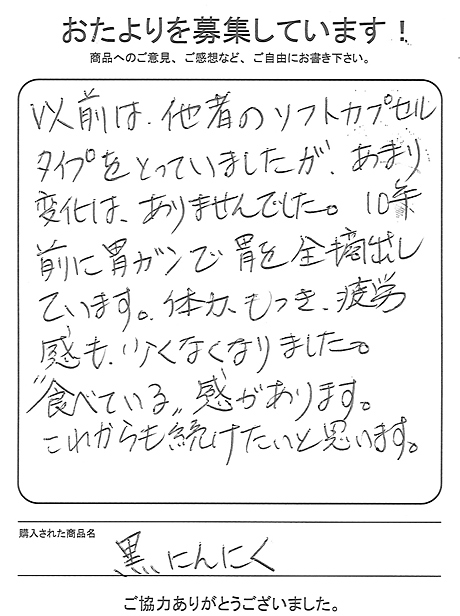 おたよりを募集しています！
商品へのご意見、ご感想など、ご自由にお書き下さい。
以前は、他者のソフトカプセル
タイプをとっていましたが、あまり
変化は、ありませんでした。10年
前に胃ガンで胃を全摘出し
ています。体力、もつき、疲労
感も、少くなくなりました。
"食べている"感があります。
これからも続けたいと思います。
購入された商品名
黒にんにく
ご協力ありがとうございました。